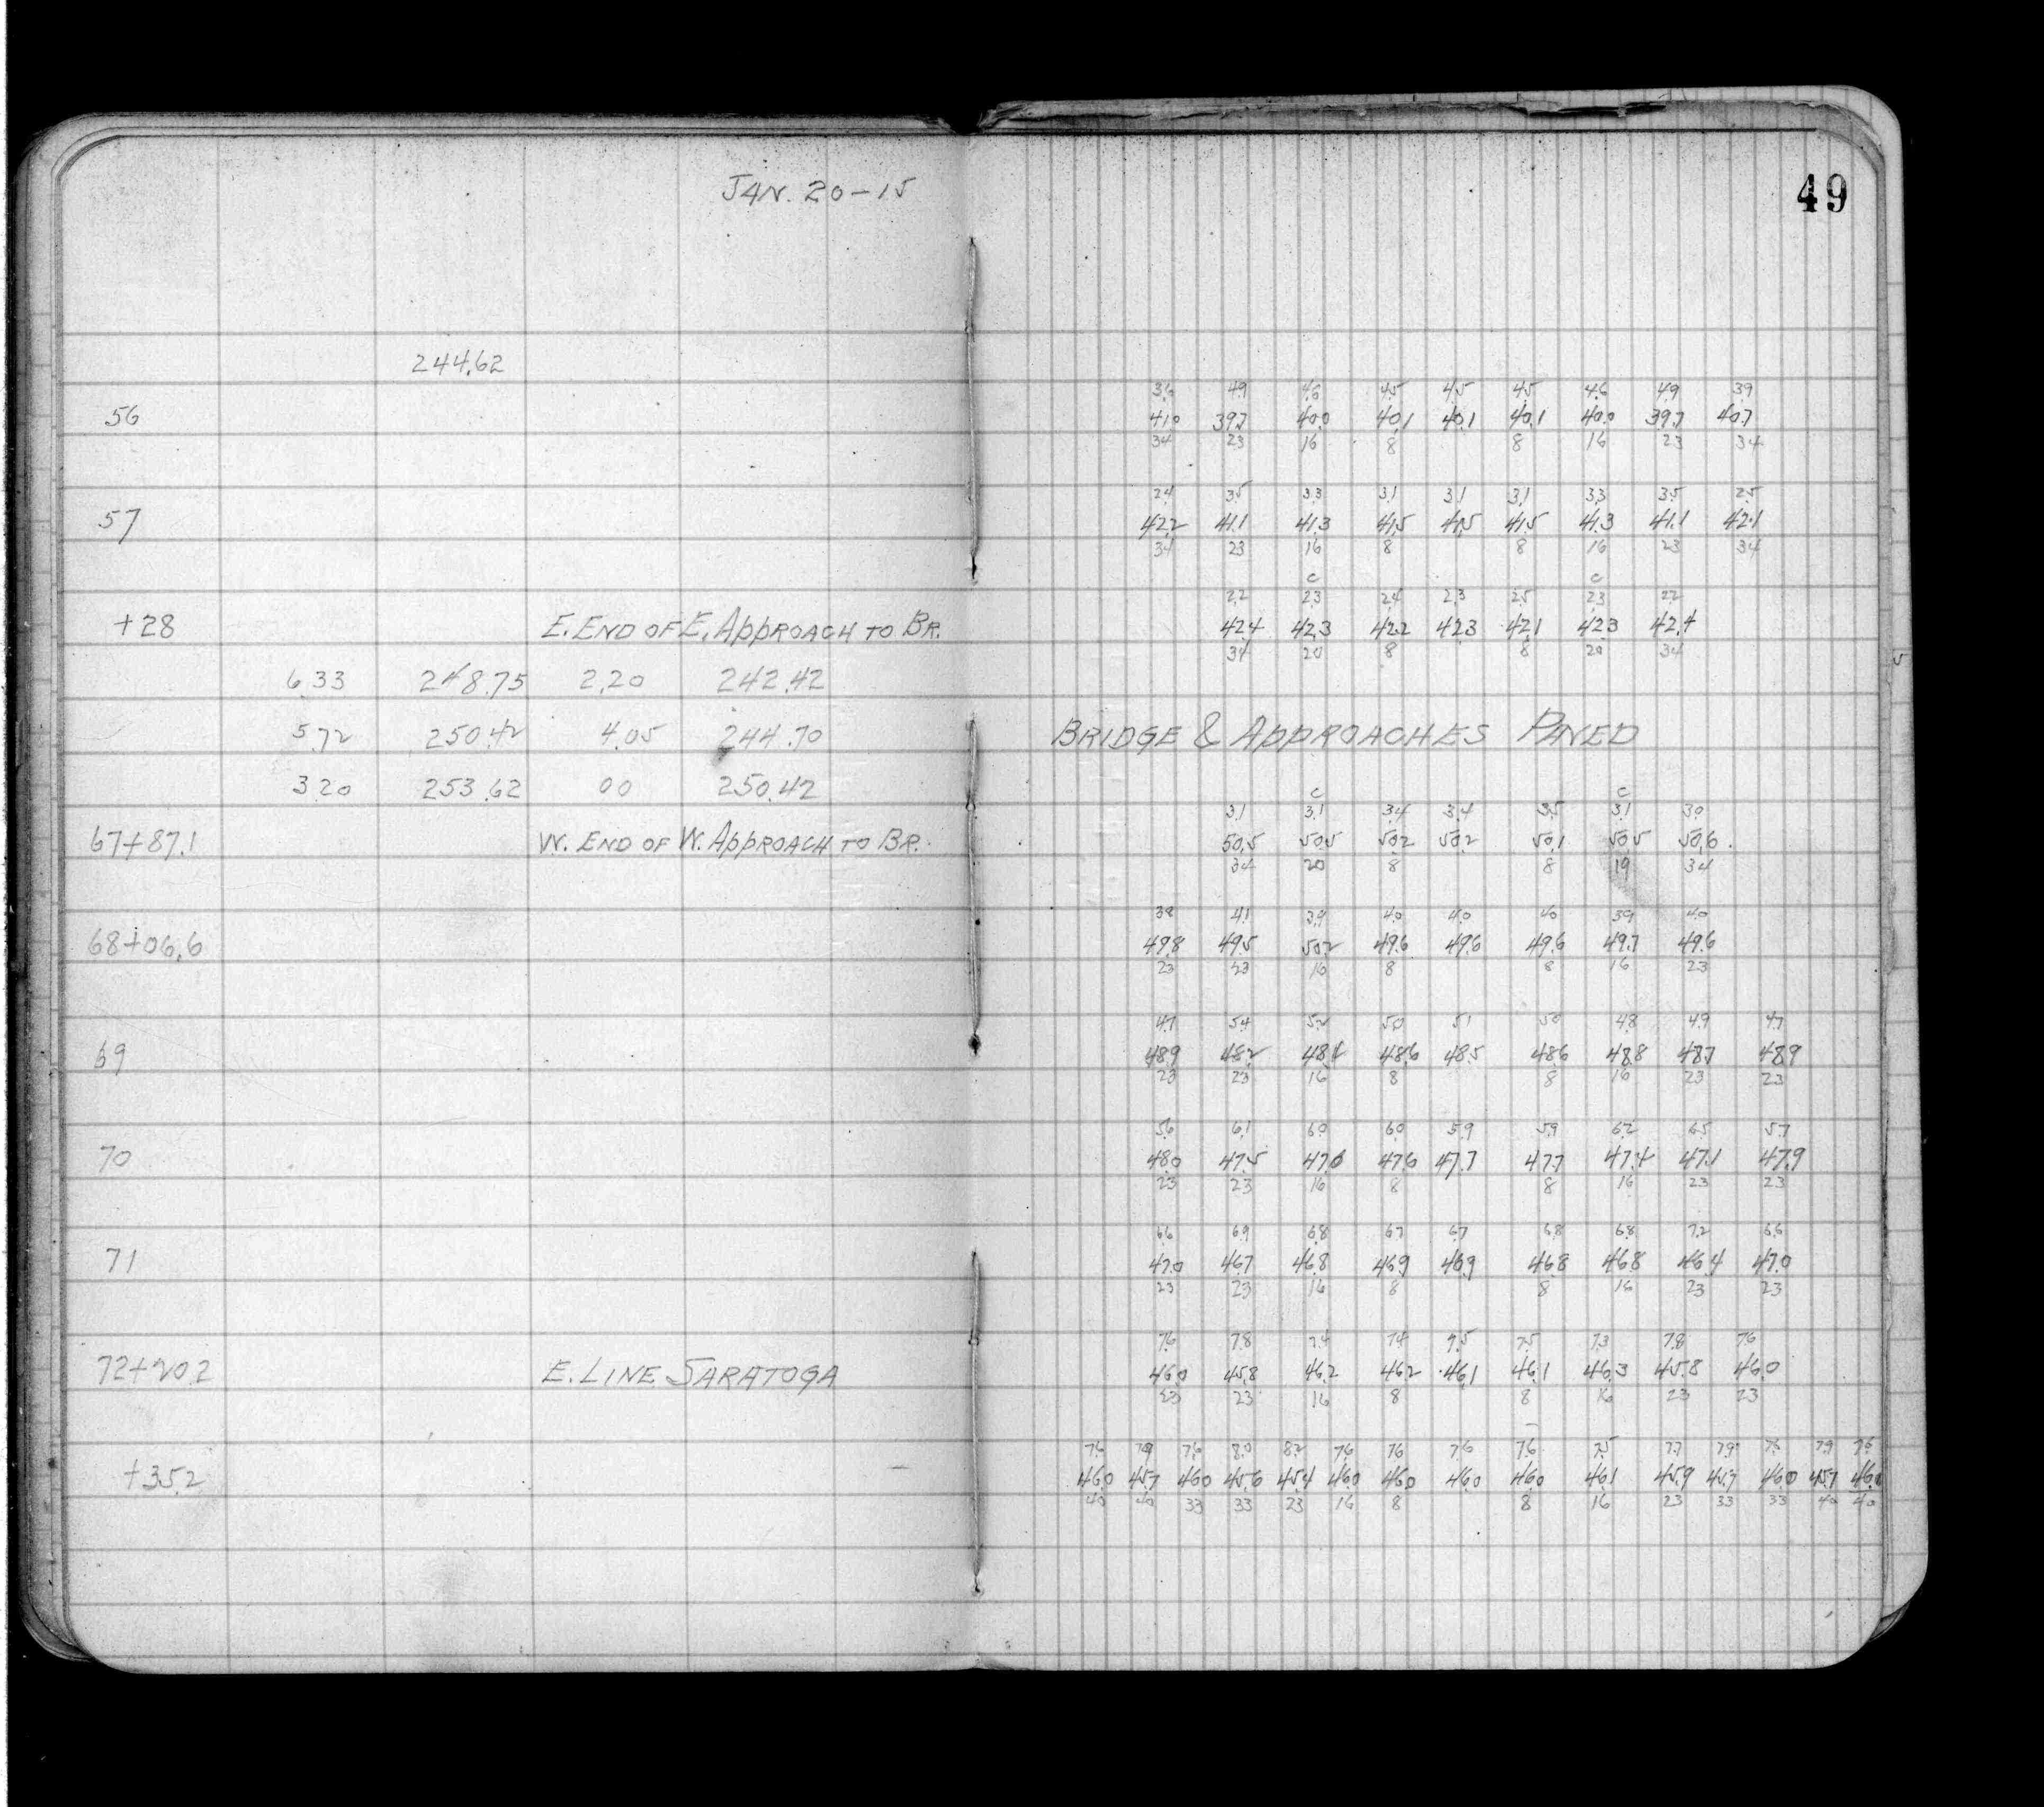 JAN. 20-15
49
244.62
3.6 4.9 4.6 4.5 4.5 4.5 4.6 4.9 3.9
56 41.0 39.7 40.0 40.1 40.1 40.1 40.0 39.7 40.7
34 23 16 8 8 16 23 34
2.4 3.5 3.3 3.1 3.1 3.1 3.3 3.5 2.5
57 42.2 41.1 41.3 41.5 41.5 41.5 41.3 41.1 42.1
34 23 16 8 8 16 23 34
C C
2.2 2.3 2.4 2.3 2.5 2.3 2.2
+28 E. END OF E. APPROACH TO BR. 42.4 42.3 42.2 42.3 42.1 42.3 42.4
34 20 8 8 20 34
6.33 248.75 2.20 242.42
5.72 250.42 4.05 244.70 BRIDGE & APPROACHES PAVED
3.20 253.62 00 250.42
C C
3.1 3.1 3.4 3.4 3.5 3.1 3.0
67+87.1 W. END OF W. APPROACH TO BR. 50.5 50.5 50.2 50.2 50.1 50.5 50.6
34 20 8 8 19 34
3.8 4.1 3.4 4.0 4.0 4.0 3.9 4.0
68+06.6 49.8 49.5 50.2 49.6 49.6 49.6 49.7 49.6
23 23 16 8 8 16 23
4.7 5.4 5.2 5.0 5.1 5.0 4.8 4.9 4.7
69 48.9 48.2 48.4 48.6 48.5 48.6 48.8 48.7 48.9
23 23 16 8 8 16 23 23
5.6 6.1 6.0 6.0 5.9 5.9 6.2 6.5 5.7
70 48.0 47.5 47.6 47.6 47.7 47.7 47.4 47.1 47.9
23 23 16 8 8 16 23 23
6.6 6.9 6.8 6.7 6.7 6.8 6.8 7.2 6.6
71 47.0 46.7 46.8 46.9 46.9 46.8 46.8 46.4 47.0
23 23 16 8 8 16 23 23
7.6 7.8 7.4 7.4 7.5 7.5 7.3 7.8 7.6
72+20.2 E. LINE SARATOGA 46.0 45.8 46.2 46.2 46.1 46.1 46.3 45.8 46.0
23 23 16 8 8 16 23 23
7.6 7.9 7.6 8.0 8.2 7.6 7.6 7.6 7.6 7.5 7.7 7.9 7.6 7.9 7.6
+35.2 46.0 45.7 46.0 45.6 45.4 46.0 46.0 46.0 46.0 46.1 45.9 45.7 46.0 45.7 46.0
40 40 33 33 23 16 8 8 16 23 33 33 40 40